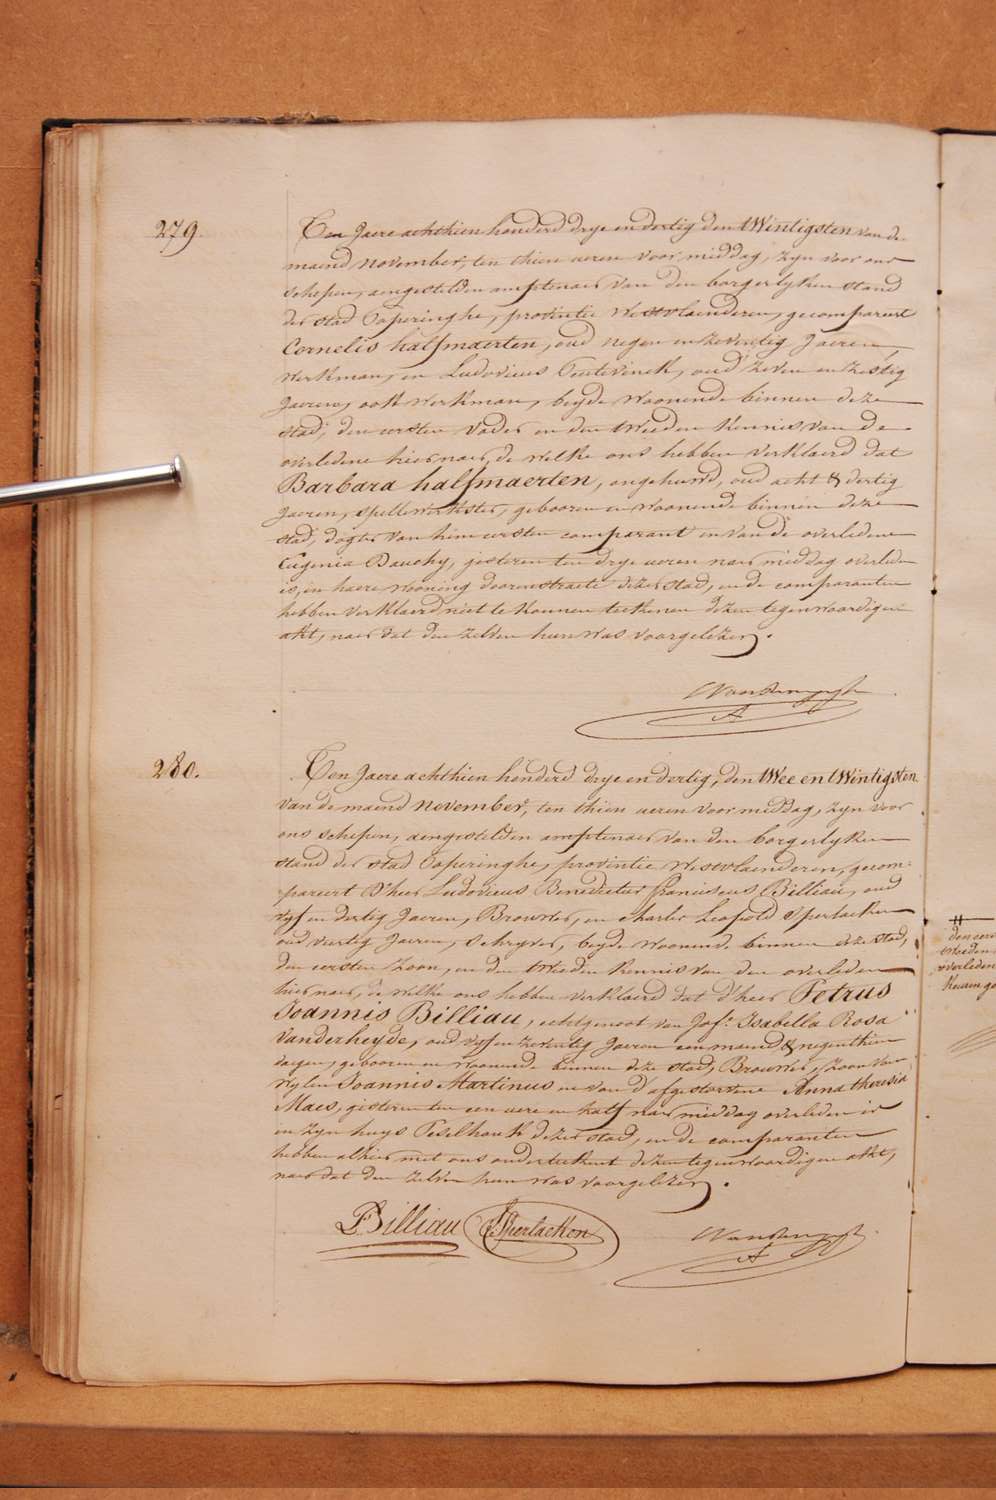 279.
Ten Jaere achthien honderd drye en dertig den tWintigsten van de
maend november, ten thien ueren voor middag, zyn voor ons
schepen, aengestelden amptenaer van den borgerlyken stand
der stad Poperinghe, provintie Westvlaenderen, gecompareert
Cornelis halfmaerten, oud negen en zeventig Jaeren,
werkman, en Ludovicus Oudevinck, oud zeven en zestig
Jaeren, ook werkman, beyde woonende binnen deze
stad, den eersten vader en den tweeden kennis van de
overledene hier naer, de welke ons hebben verklaerd dat
Barbara halfmaerten, ongehuwd, oud acht & dertig
Jaeren, spellewerkster, gebooren en woonende binnen deze
stad, dogter van hem eersten comparant en van de overledene
Eugenia Dauchy, gisteren ten drye ueren naer middag overleden
is, in haere wooning doornstraete dezer stad, en de comparanten
hebben verklaerd niet te konnen teekenen dezen tegenwoordigen
akt, naer dat den zelven hun was voorgelezen.
280.
Ten Jaere achthien honderd drye en dertig, den tWee en tWintigsten
van de maend november, ten thien ueren voor middag, zyn voor
ons schepen, aengestelden amptenaer van den borgerlyken
stand der stad Poperinghe, provintie Westvlaenderen, gecom-
pareert d'heer Ludovicus Benedictus franciscus Billiau, oud
vyf en dertig Jaeren, Brouwer, en Charles Leopold Sperlacken
oud viertig Jaeren, schryver, beyde woonende binnen deze stad,
den eersten zoon, en den tweeden kennis van den overleden
hier naer, de welke ons hebben verklaerd dat d'heer Petrus
Joannis Billiau, echtgenoot van Jofe. Isabella Rosa
Vanderheyde, oud vyf en zeventig Jaeren een maend & negenthien
dagen, gebooren en woonende binnen deze stad, Brouwer, zoon van
wylen Joannis Martinus en van d'afgestorvene Anna theresia
Maes, gisteren ten een uere en half naer middag overleden is
in zyn huys Peselhouk dezer stad, en de comparanten
hebben alhier met ons onderteekent dezen tegenwoordigen akt,
naer dat den zelven hun was voorgelezen.
Billiau Sperlacken
den eers
tweeden
overleden